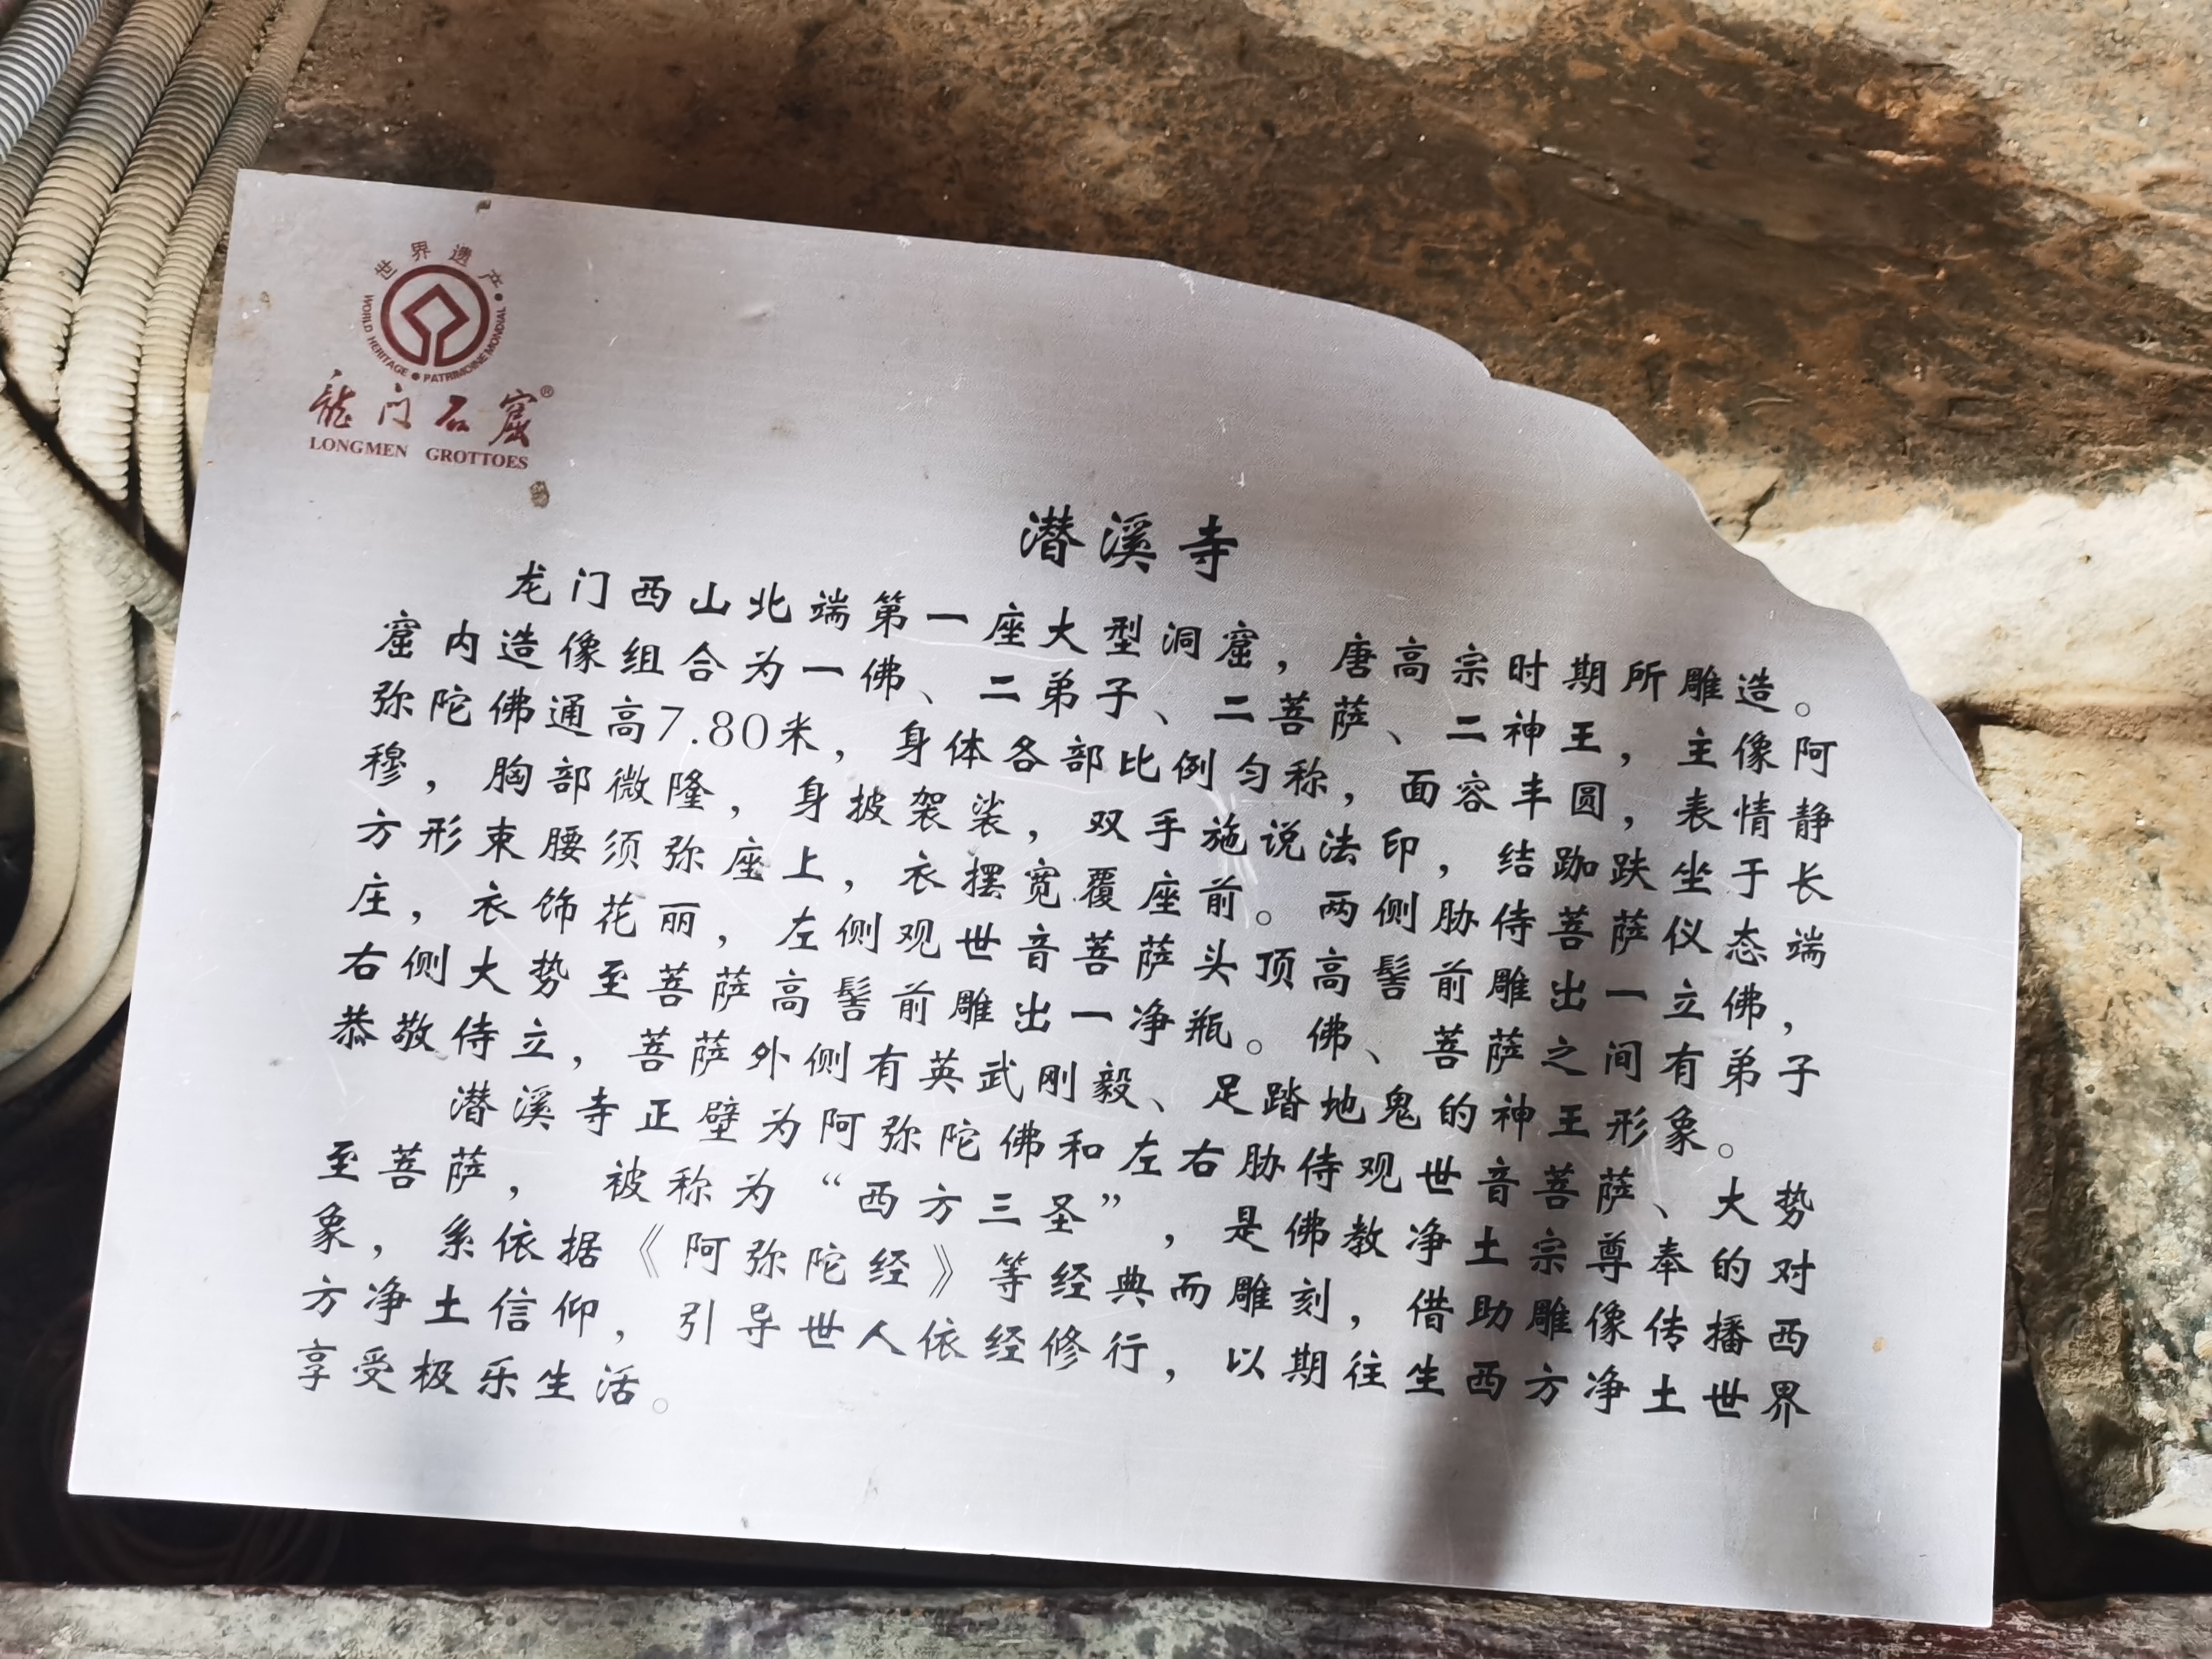 世界遗产
WORLD HERITAGE • PATRIMOINE MONDIAL
龍门石窟®
LONGMEN GROTTOES
潜溪寺
龙门西山北端第一座大型洞窟，唐高宗时期所雕造。
窟内造像组合为一佛、二弟子、二菩萨、二神王，主像阿
弥陀佛通高7.80米，身体各部比例匀称，面容丰圆，表情静
穆，胸部微隆，身披袈裟，双手施说法印，结跏趺坐于长
方形束腰须弥座上，衣摆宽覆座前。两侧胁侍菩萨仪态端
庄，衣饰花丽，左侧观世音菩萨头顶高髻前雕出一立佛，
右侧大势至菩萨高髻前雕出一净瓶。佛、菩萨之间有弟子
恭敬侍立，菩萨外侧有英武刚毅、足踏地鬼的神王形象。
潜溪寺正壁为阿弥陀佛和左右胁侍观世音菩萨、大势
至菩萨，被称为“西方三圣”，是佛教净土宗尊奉的对
象，系依据《阿弥陀经》等经典而雕刻，借助雕像传播西
方净土信仰，引导世人依经修行，以期往生西方净土世界
享受极乐生活。